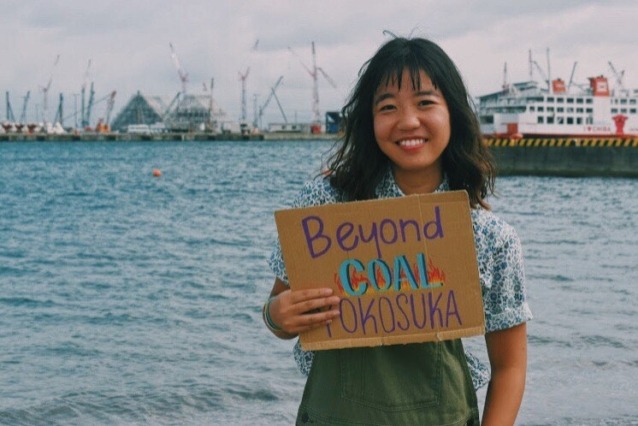 Beyond
COAL
YOKOSUKA